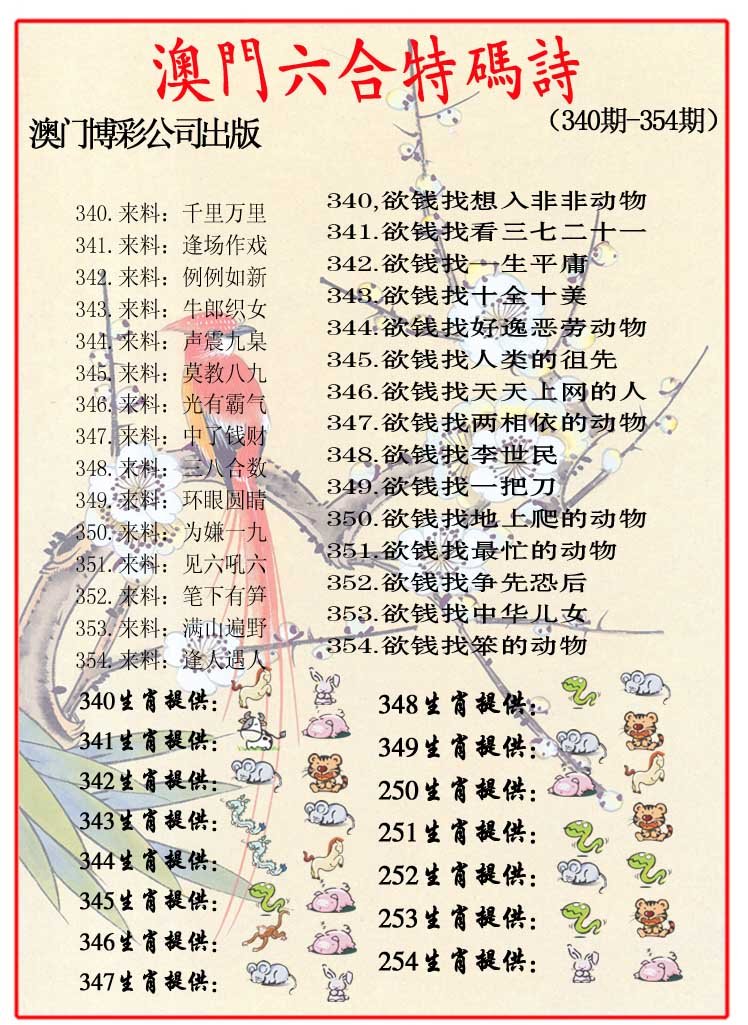 澳門六合特碼詩
澳门博彩公司出版
（340期-354期）
340.来料：千里万里
341.来料：逢场作戏
342.来料：例例如新
343.来料：牛郎织女
344.来料：声震九臯
345.来料：莫教八九
346.来料：光有霸气
347.来料：中了钱财
348.来料：三八合数
349.来料：环眼圆睛
350.来料：为嫌一九
351.来料：见六吼六
352.来料：笔下有笋
353.来料：满山遍野
354.来料：逢人遇人
340,欲钱找想入非非动物
341.欲钱找看三七二十一
342.欲钱找一生平庸
343.欲钱找十全十美
344.欲钱找好逸恶劳动物
345.欲钱找人类的徂先
346.欲钱找天天上网的人
347.欲钱找两相依的动物
348.欲钱找李世民
349.欲钱找一把刀
350.欲钱找地上爬的动物
351.欲钱找最忙的动物
352.欲钱找争先恐后
353.欲钱找中华儿女
354.欲钱找笨的动物
340生肖提供：
341生肖提供：
342生肖提供：
343生肖提供：
344生肖提供：
345生肖提供：
346生肖提供：
347生肖提供：
348生肖提供：
349生肖提供：
250生肖提供：
251生肖提供：
252生肖提供：
253生肖提供：
254生肖提供：